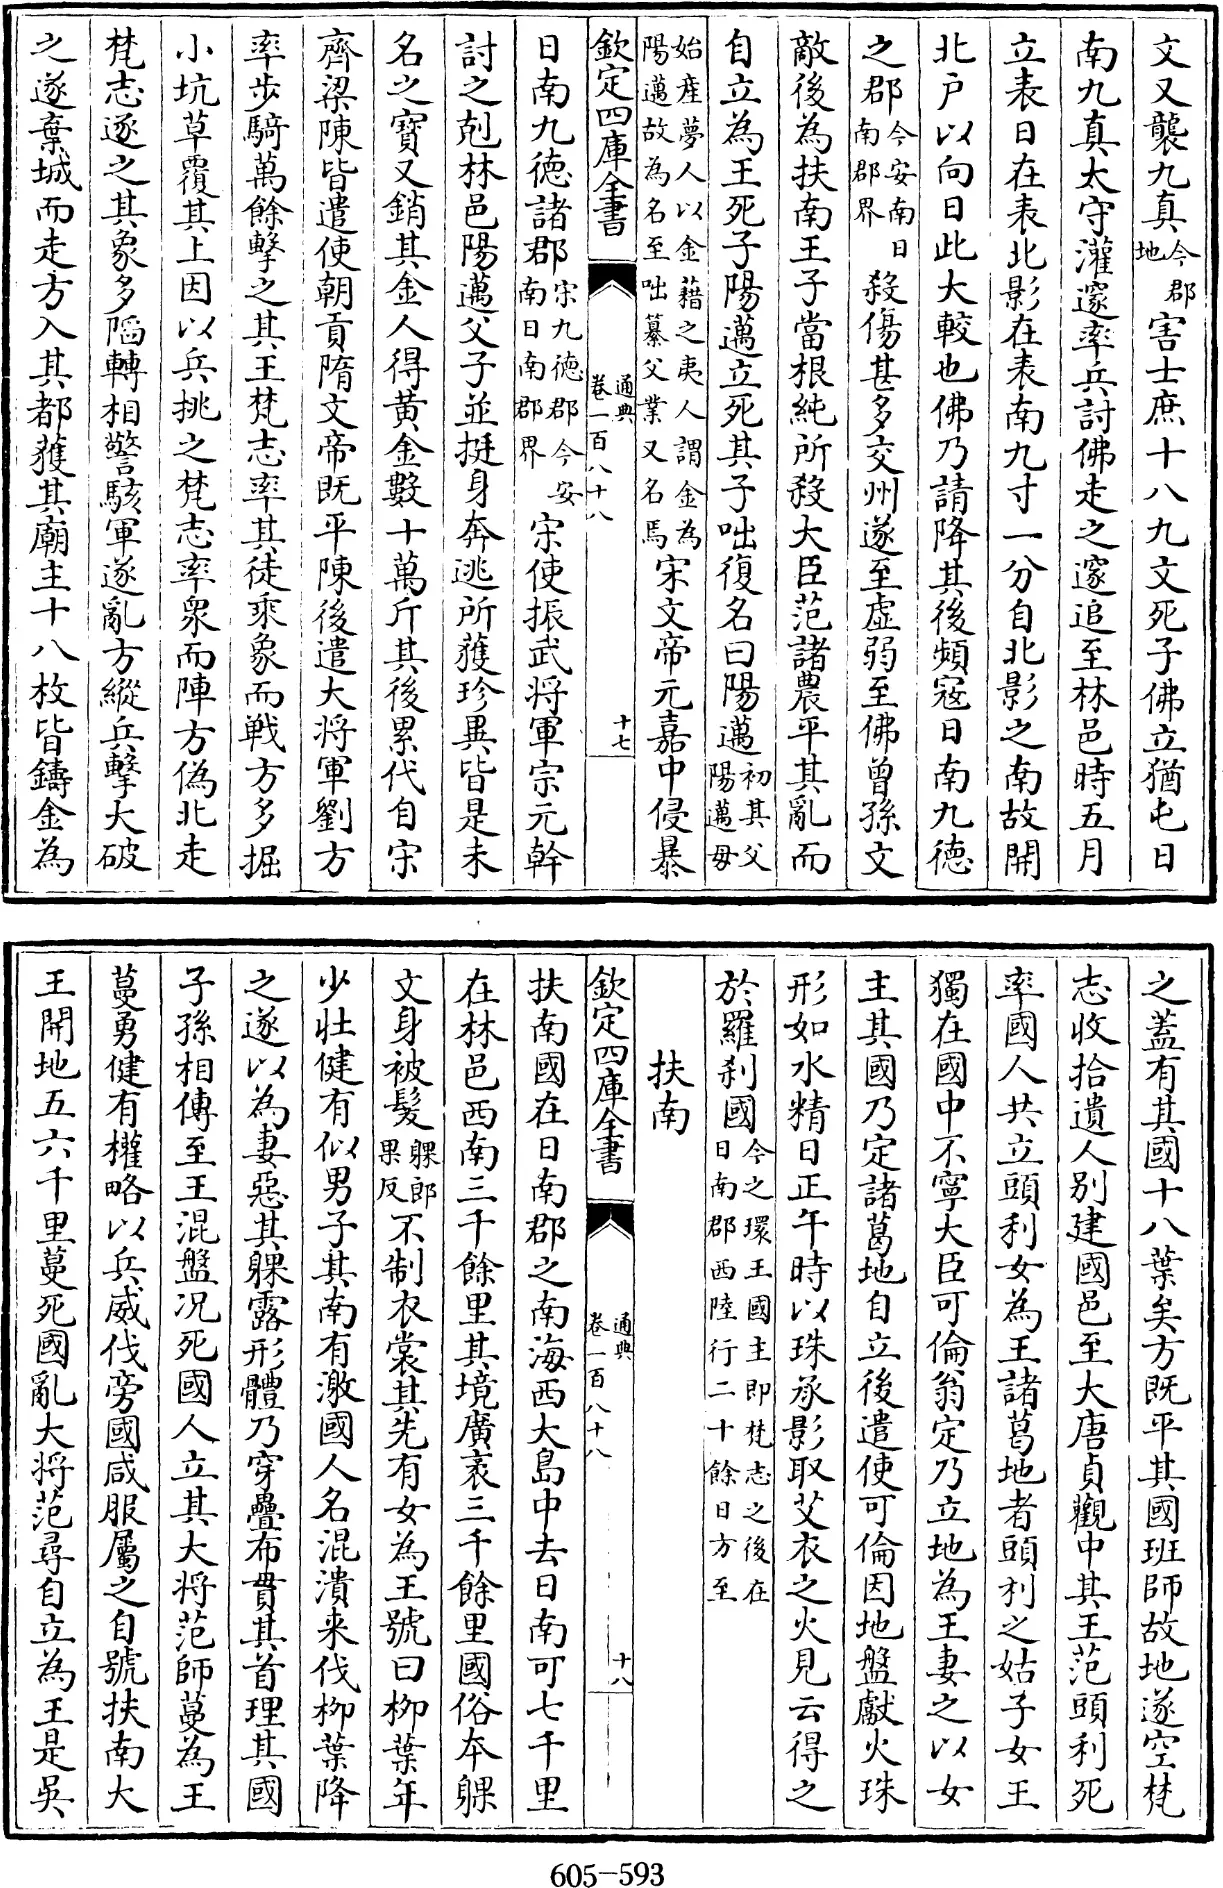 文又襲九真今郡地害士庶十八九文死子佛立猶屯日
南九真太守灌邃率兵討佛走之邃追至林邑時五月
立表日在表北影在表南九寸一分自北影之南故開
北戸以向日此大較也佛乃請降其後頻寇日南九德
之郡今安南日南郡界殺傷甚多交州遂至虛弱至佛曾孫文
敵後為扶南王子當根純所殺大臣范諸農平其亂而
自立為王死子陽邁立死其子咄復名曰陽邁初其父陽邁母
始產夢人以金藉之夷人謂金為陽邁故為名至咄纂父業又名焉宋文帝元嘉中侵暴
欽定四庫全書 通典 卷一百八十八 十七
日南九德諸郡宋九德郡今安南日南郡界宋使振武将軍宗元幹
討之剋林邑陽邁父子並挺身奔逃所獲珍異皆是未
名之寶又銷其金人得黄金數十萬斤其後累代自宋
齊梁陳皆遣使朝貢隋文帝既平陳後遣大将軍劉方
率步騎萬餘擊之其王梵志率其徒乘象而戰方多掘
小坑草覆其上因以兵挑之梵志率衆而陣方偽北走
梵志逐之其象多陷轉相驚駭軍遂亂方縱兵擊大破
之遂棄城而走方入其都獲其廟主十八枚皆鑄金為
之蓋有其國十八葉矣方既平其國班師故地遂空梵
志收拾遺人别建國邑至大唐貞觀中其王范頭利死
率國人共立頭利女為王諸葛地者頭利之姑子女王
獨在國中不寧大臣可倫翁定乃立地為王妻之以女
主其國乃定諸葛地自立後遣使可倫因地盤獻火珠
形如水精日正午時以珠承影取艾衣之火見云得之
於羅刹國今之環王國主即梵志之後在日南郡西陸行二十餘日方至
扶南
欽定四庫全書 通典 卷一百八十八 十八
扶南國在日南郡之南海西大島中去日南可七千里
在林邑西南三千餘里其境廣袤三千餘里國俗本躶
文身被髮躶郎果反不制衣裳其先有女為王號曰栁葉年
少壯健有似男子其南有激國人名混潰来伐栁葉降
之遂以為妻惡其躶露形體乃穿疊布貫其首理其國
子孫相傳至王混盤况死國人立其大将范師蔓為王
蔓勇健有權略以兵威伐旁國咸服屬之自號扶南大
王開地五六千里蔓死國亂大将范尋自立為王是吳
605-593